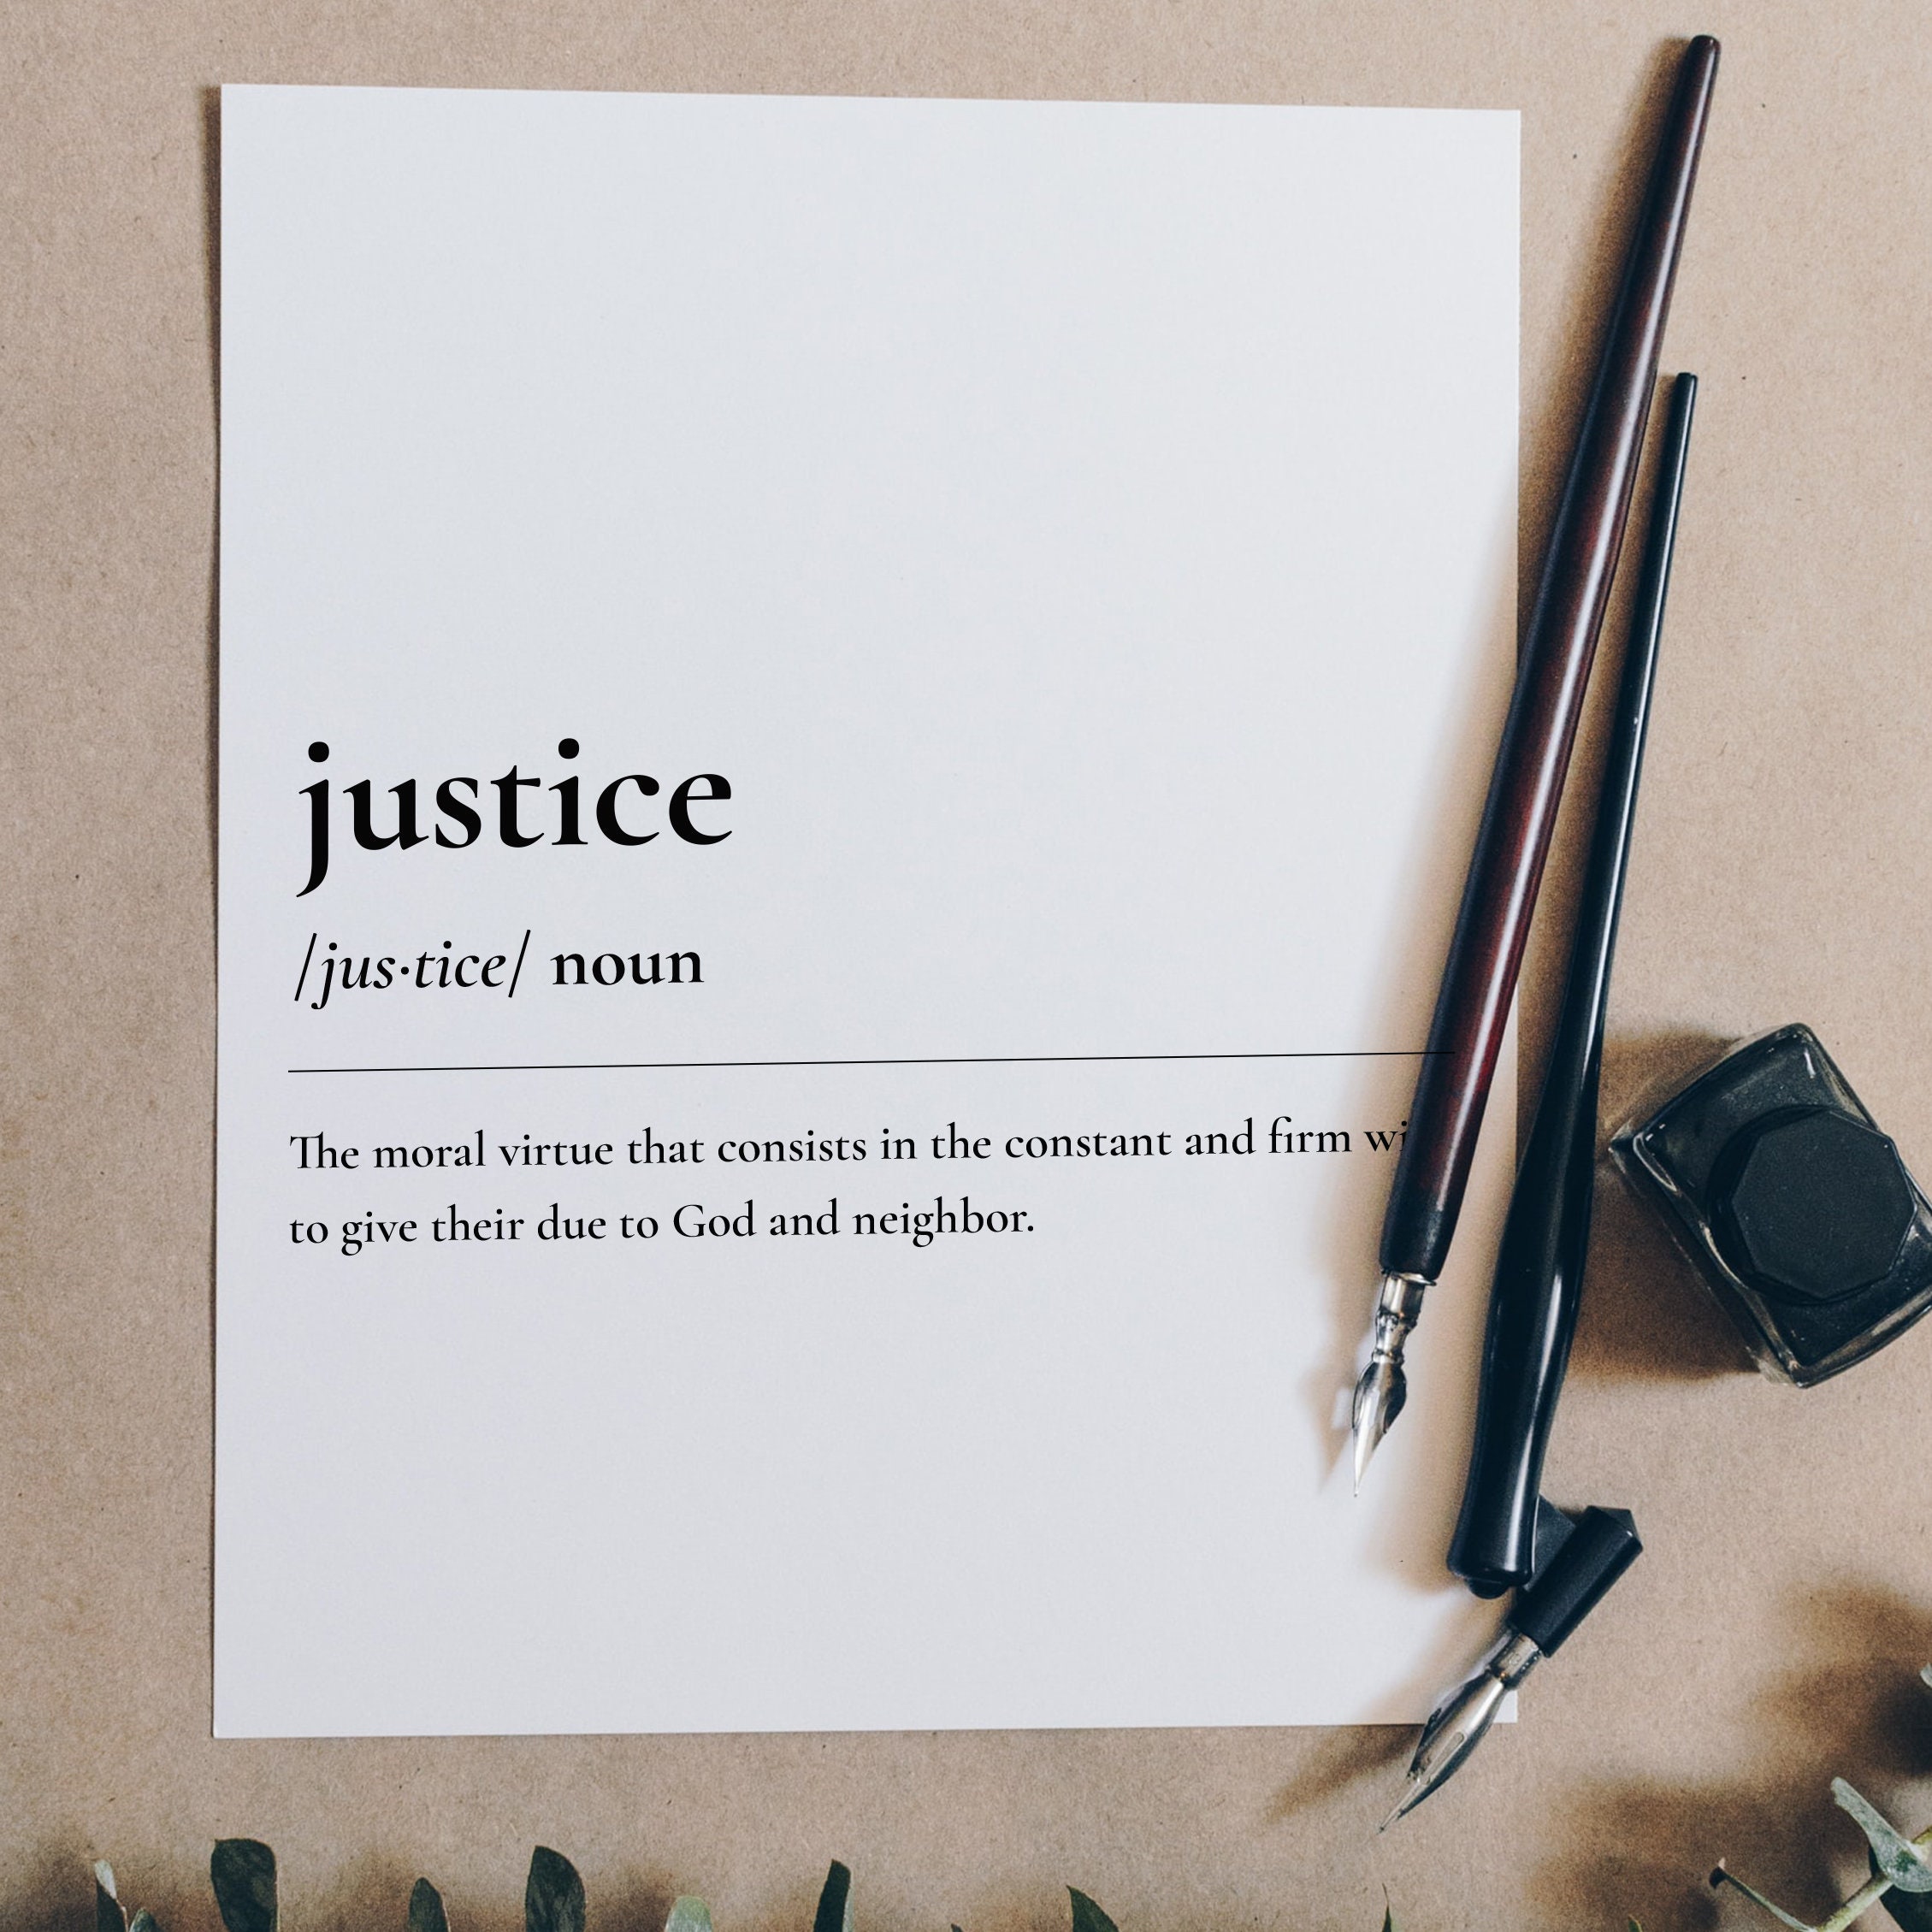 justice
/jus·tice/ noun
The moral virtue that consists in the constant and firm
to give their due to God and neighbor.